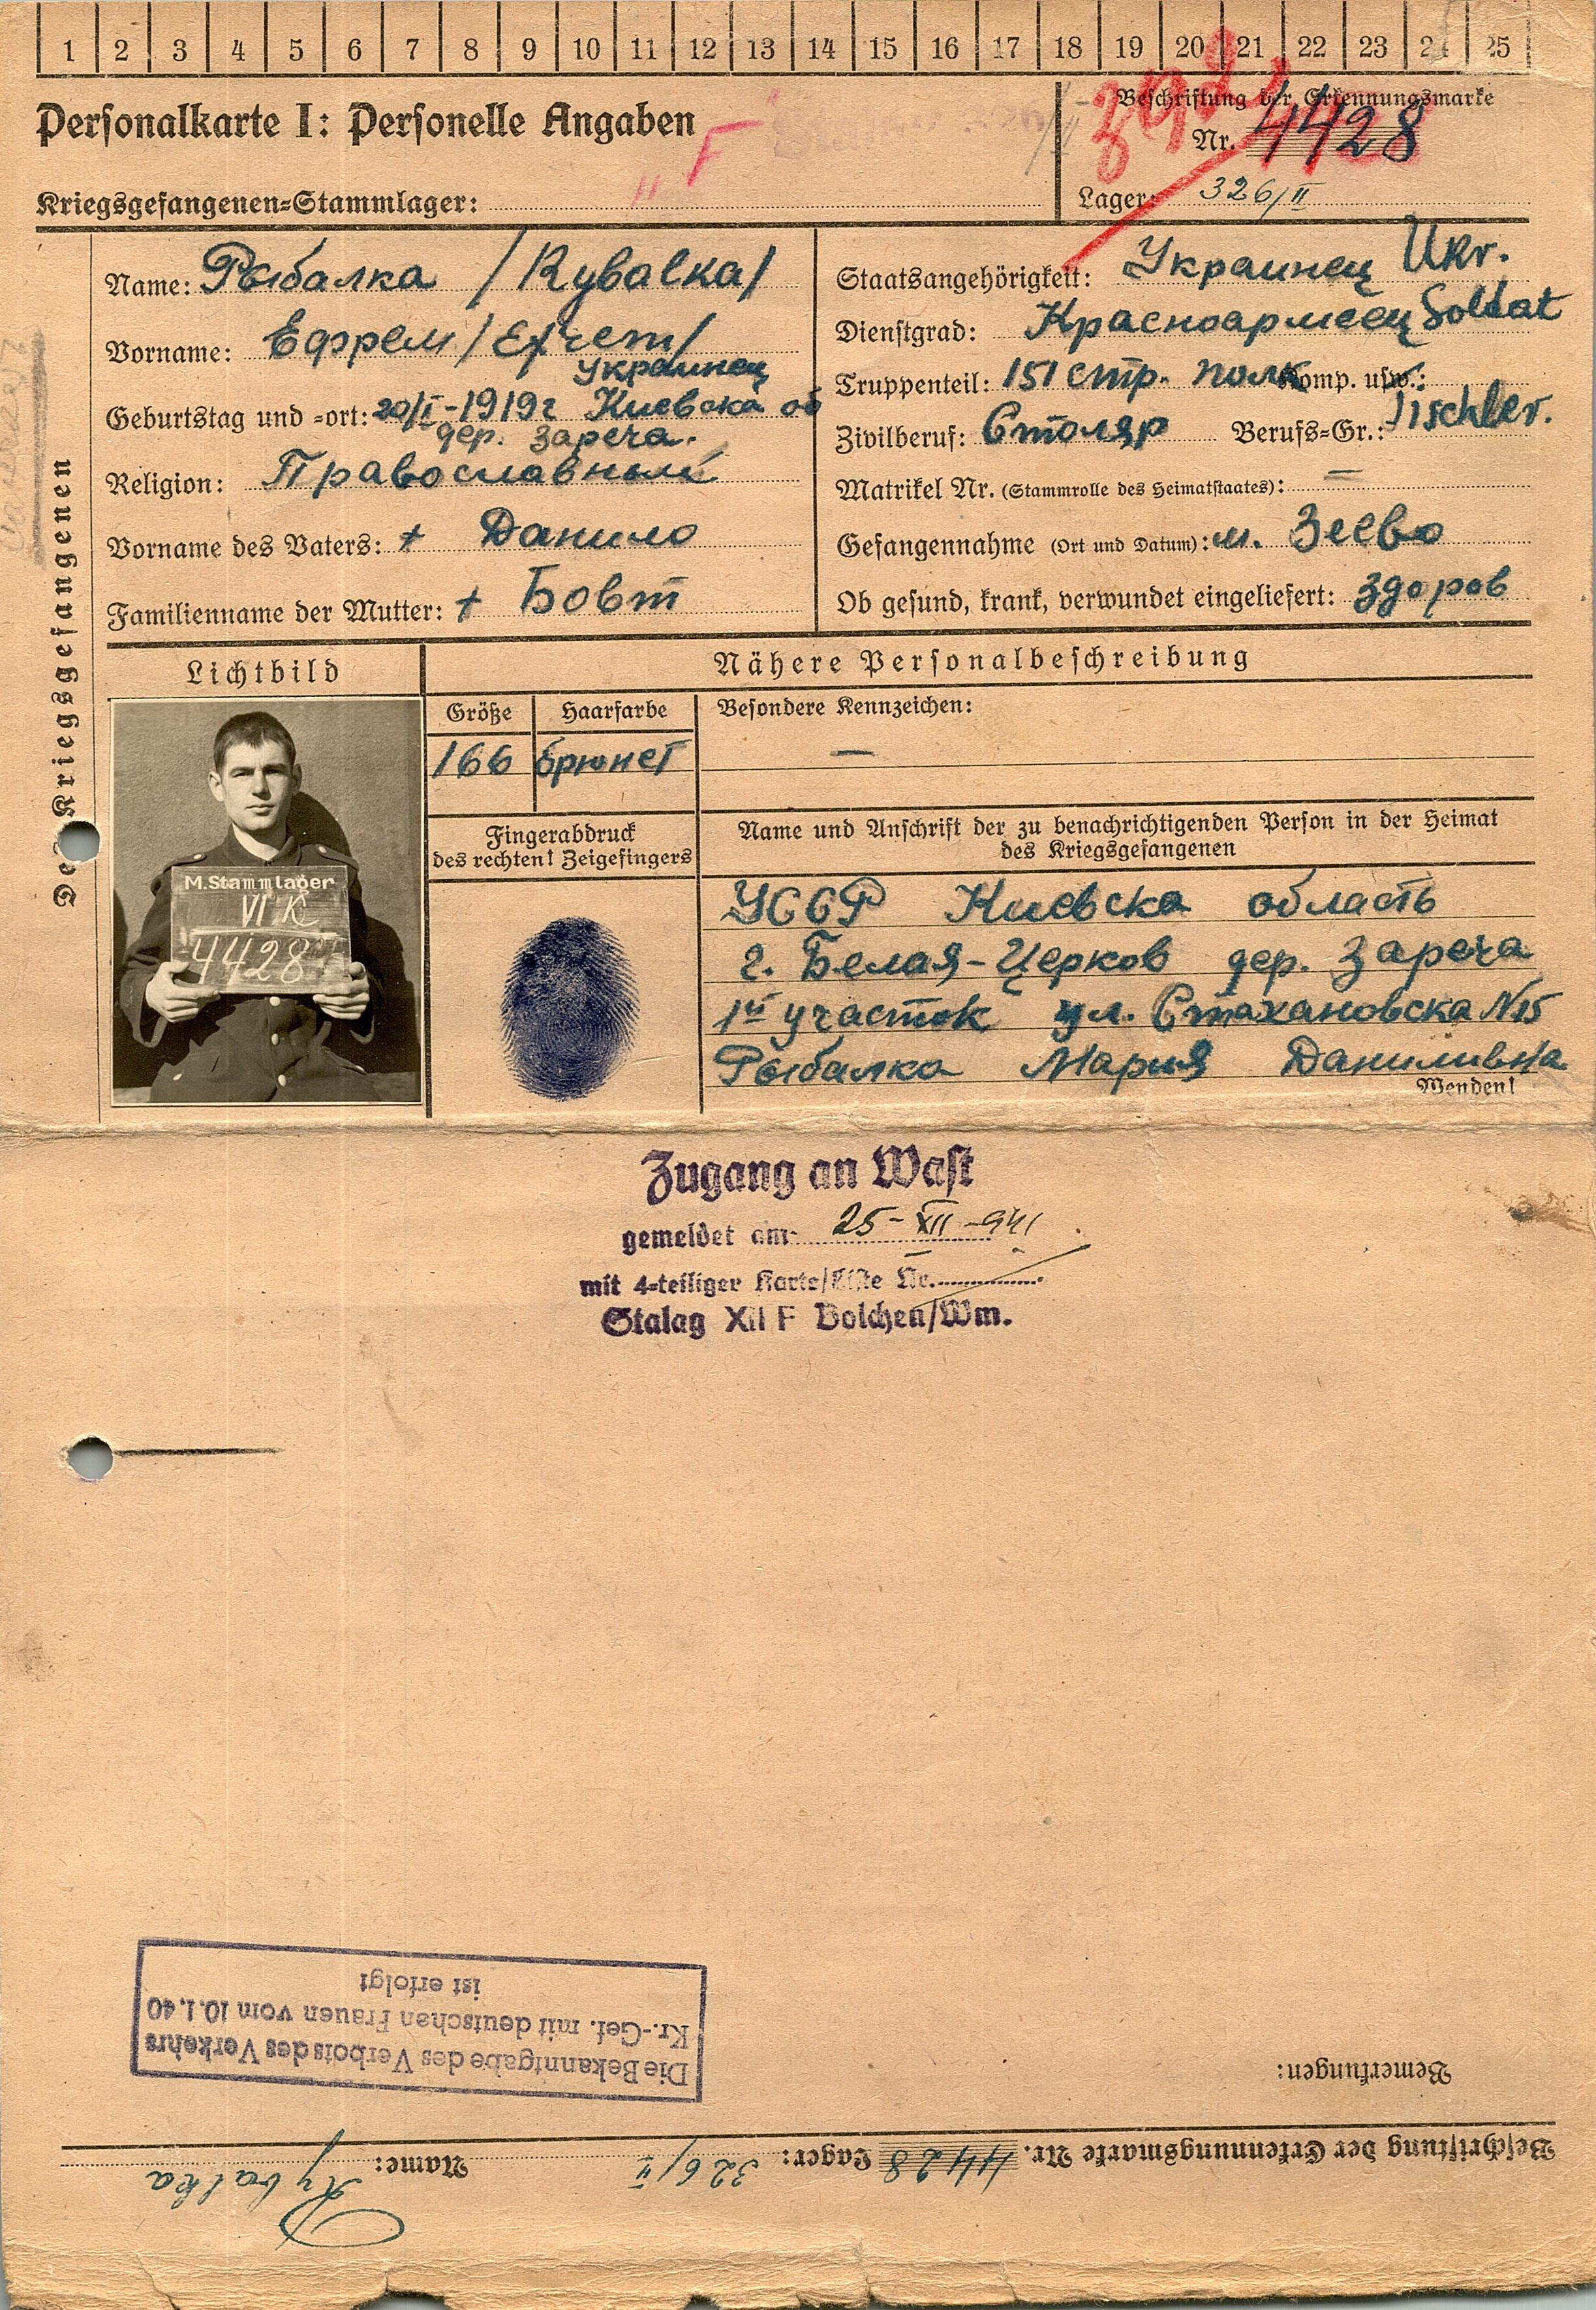 1 2 3 4 5 6 7 8 9 10 11 12 13 14 15 16 17 18 19 20 21 22 23 24 25
Personalkarte I: Personelle Angaben
"F"
Kriegsgefangenen=Stammlager:
Beschriftung der Erkennungsmarke
Nr. 4428
Lager: 326/II
Des Kriegsgefangenen
Name: Рыбалка /Rybalka/
Vorname: Ефрем /Efrem/
украинец
Geburtstag und =ort: 20/I-1919г Киевска об
дер. Зареча.
Religion: Православный
Vorname des Vaters: + Данило
Familienname der Mutter: + Бовт
Staatsangehörigkeit: Украинец Ukr.
Dienstgrad: Красноармеец Soldat
Truppenteil: 151 стр. полк Komp. usw.:
Zivilberuf: Столяр Berufs=Gr.: Tischler.
Matrikel Nr. (Stammrolle des Heimatstaates): —
Gefangennahme (Ort und Datum): м. Зеево
Ob gesund, krank, verwundet eingeliefert: здоров
Lichtbild
Nähere Personalbeschreibung
Größe Haarfarbe Besondere Kennzeichen:
166 брюнет —
Fingerabdruck
des rechten! Zeigefingers
Name und Anschrift der zu benachrichtigenden Person in der Heimat
des Kriegsgefangenen
M.Stammlager
VI K
4428
УССР Киевска область
г. Белая-Церков дер. Зареча
1й участок ул. Стахановска N15
Рыбалка Мария Даниливна
Wenden!
Zugang an Wast
gemeldet am 25-XII-941
mit 4=teiliger Karte/Liste Nr.
Stalag XII F Bolchen/Wm.
Beschriftung der Erkennungsmarke Nr. 4428 Lager: 326/II Name: Rybalka
Bemerkungen:
Die Bekanntgabe des Verbots des Verkehrs
Kr.-Gef. mit deutschen Frauen vom 10.1.40
ist erfolgt